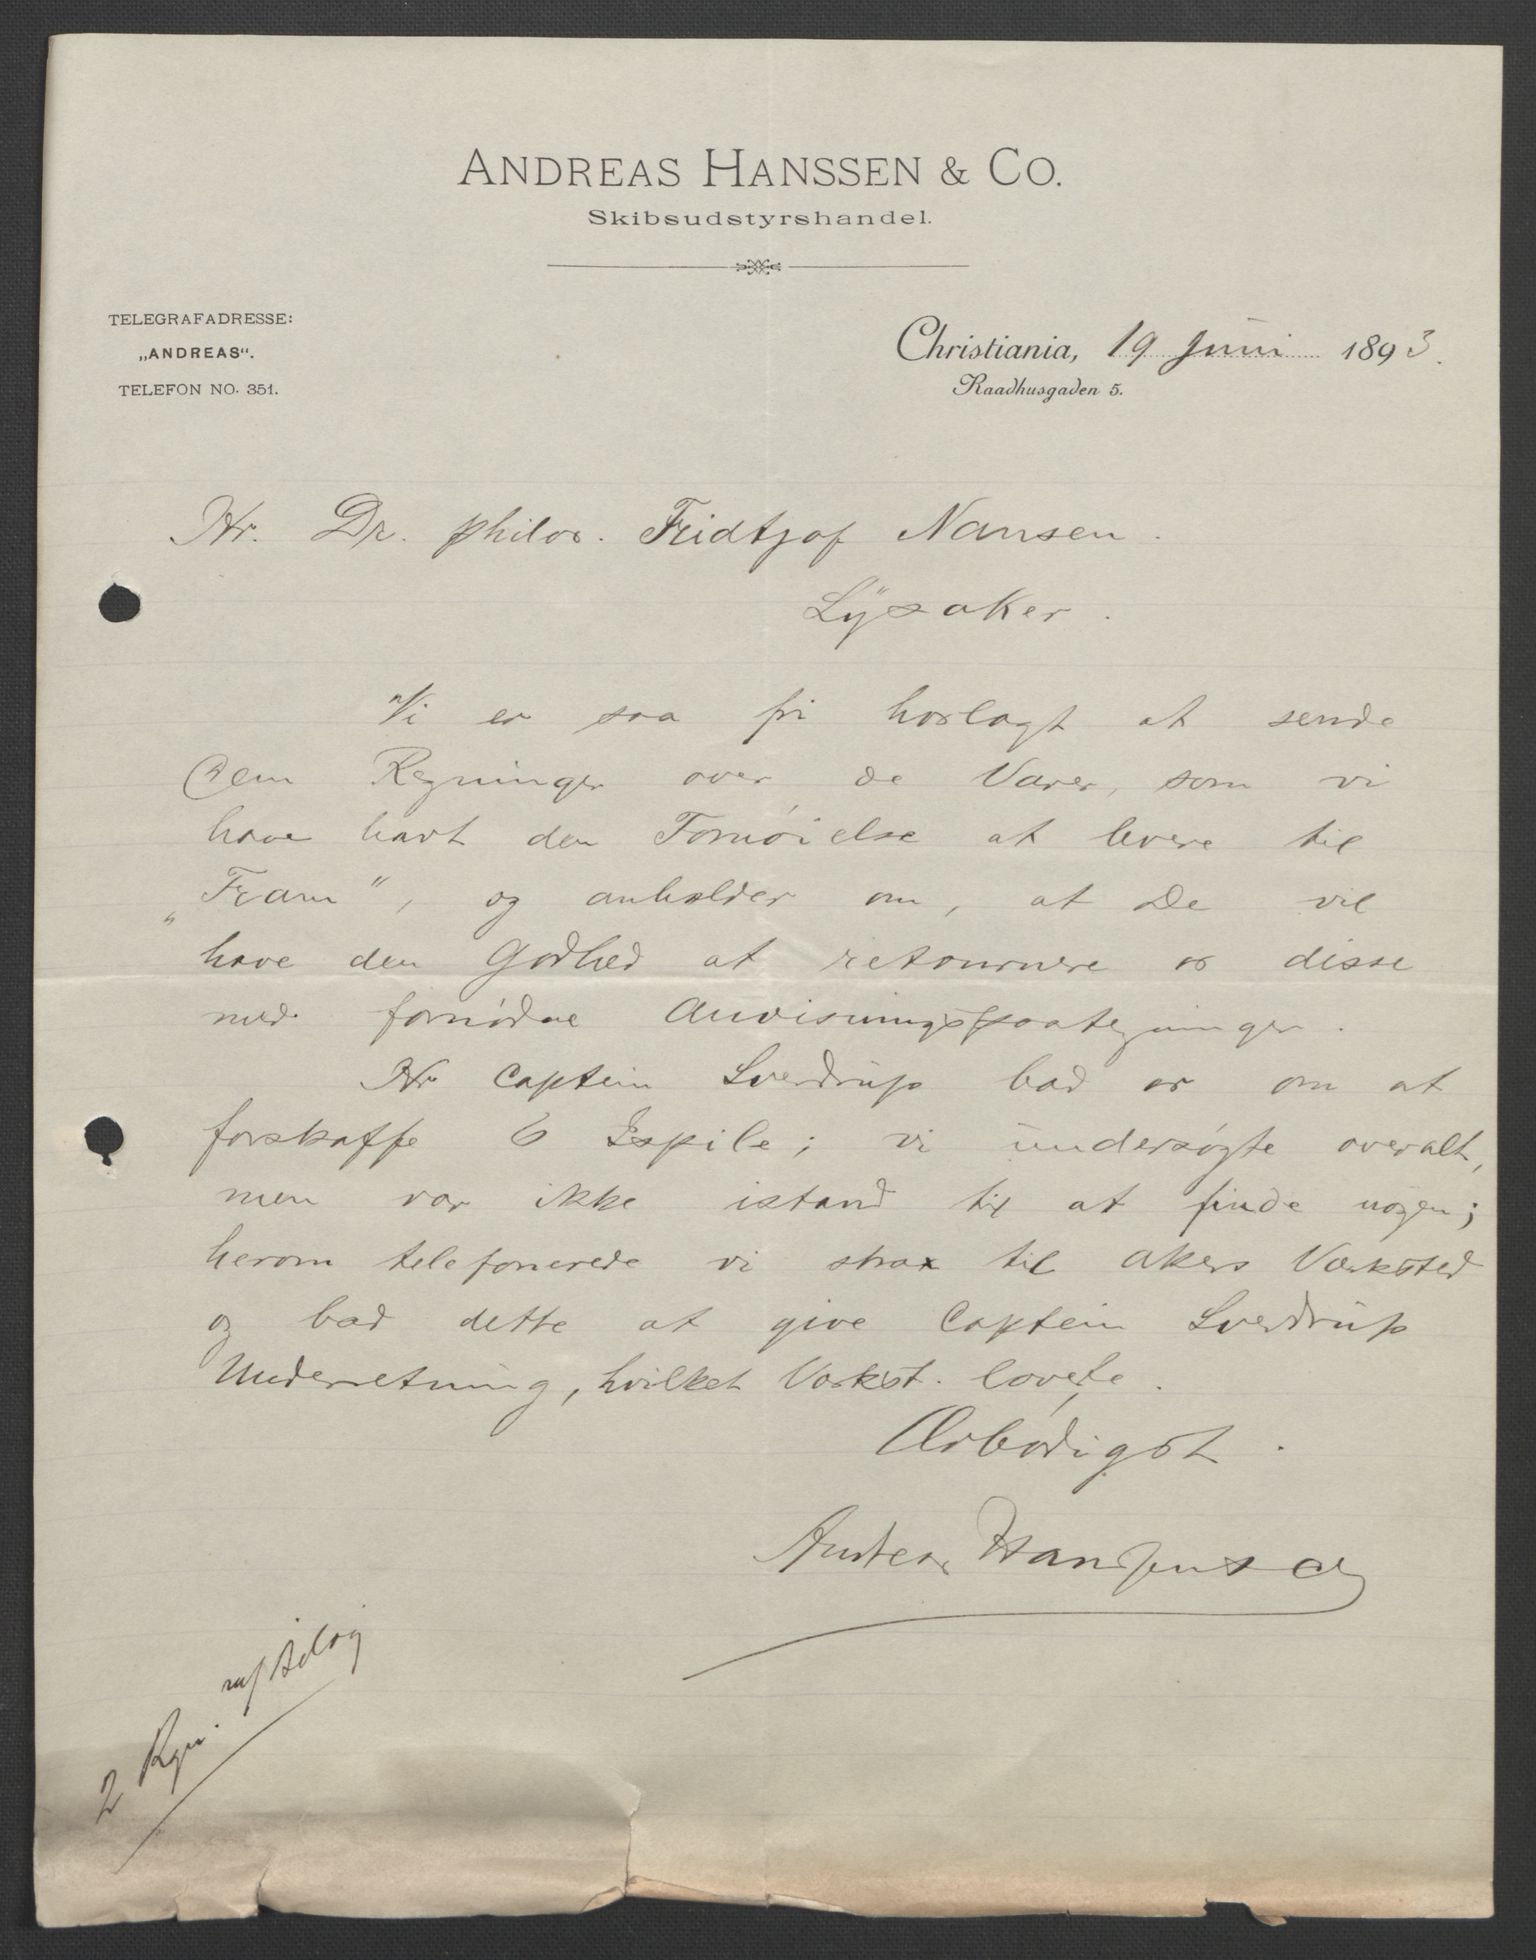 ANDREAS HANSSEN & CO.
Skibsudstyrshandel.
TELEGRAFADRESSE:
„ANDREAS“.
TELEFON NO. 351.
Christiania, 19 Juni 1893.
Raadhusgaden 5.
Hr. Dr. philos. Fridtjof Nansen.
Lysaker.
Vi er saa fri hoslagt at sende
Dem Regninger over de Varer, som vi
have havt den Fornøielse at levere til
„Fram“, og anholder om, at De vil
have den Godhed at retournere os disse
med fornødne Anvisningspaategninger.
Hr Captein Sverdrup bad os om at
forskaffe 6 Ispile; vi undersøgte overalt,
men var ikke istand til at finde nogen;
herom telefonerede vi strax til Akers Værksted
og bad dette at give Captein Sverdrup
Underretning, hvilket Værkst. lovede.
Ærbødigst.
Andreas Hanssen & Co
2 Regn.